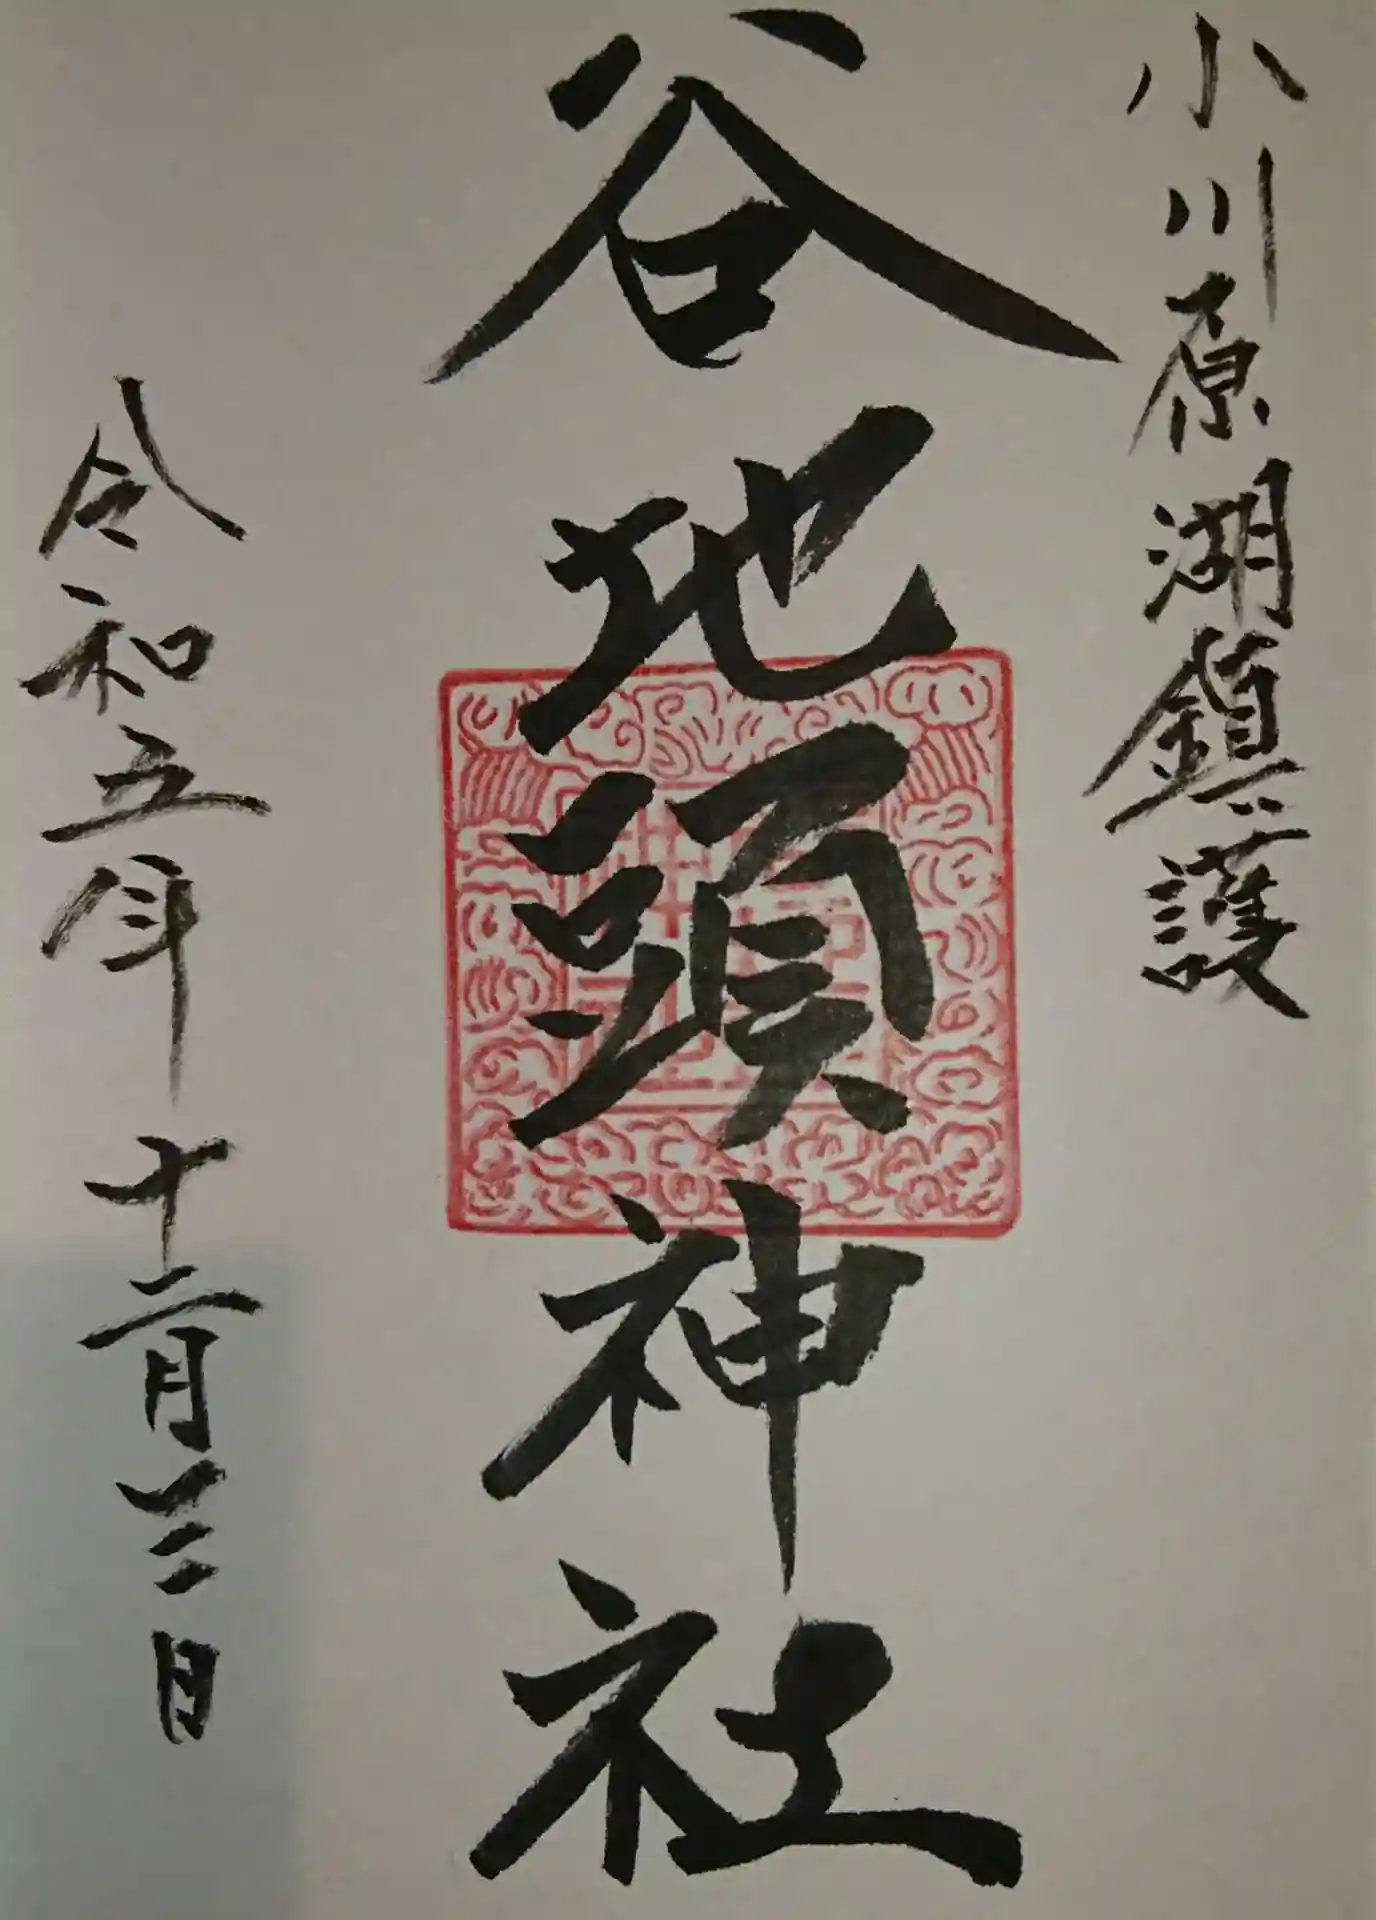 小川原湖鎮護
谷地頭神社
令和五年十二月三日